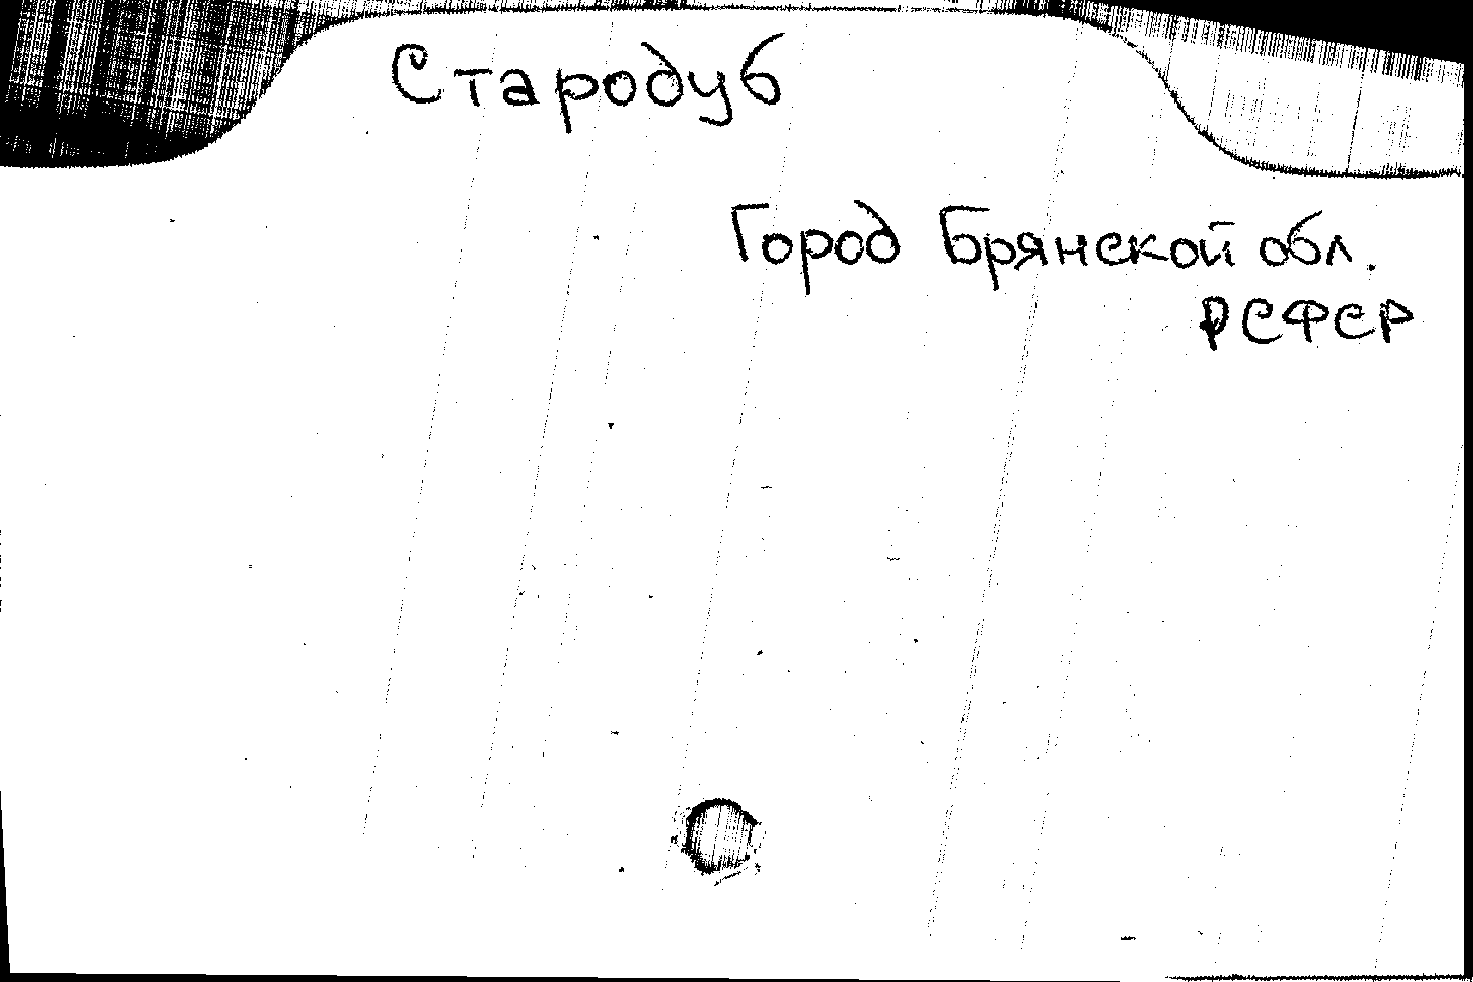 Стародуб
Город Брянской обл.
РСФСР